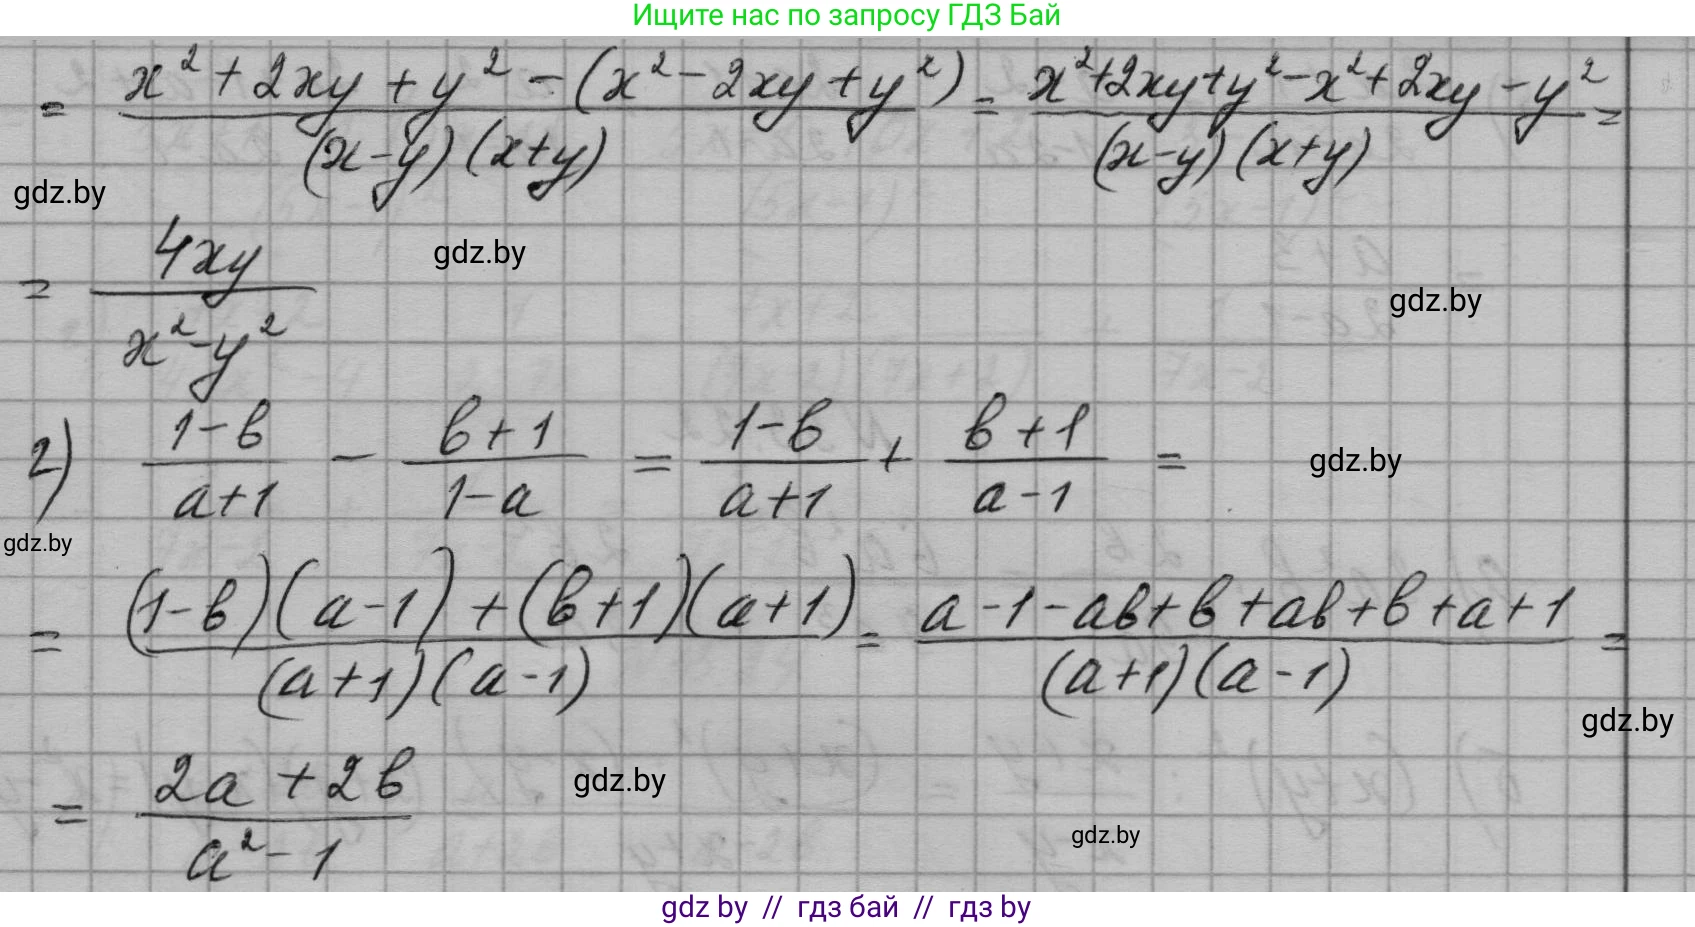 Ищите нас по запросу ГДЗ Бай
= (x² + 2xy + y² - (x² - 2xy + y²)) / ((x-y)(x+y)) = (x²+2xy+y²-x²+2xy-y²) / ((x-y)(x+y)) =
gdz.by
= 4xy / (x²-y²)
gdz.by
gdz.by
2) (1-в)/(a+1) - (в+1)/(1-a) = (1-в)/(a+1) + (в+1)/(a-1) =
gdz.by
gdz.by
= ((1-в)(a-1)+(в+1)(a+1)) / ((a+1)(a-1)) = (a-1-aв+в+aв+в+a+1) / ((a+1)(a-1)) =
gdz.by
= (2a+2в) / (a²-1)
gdz.by
gdz.by
gdz by // гдз бай // гдз by